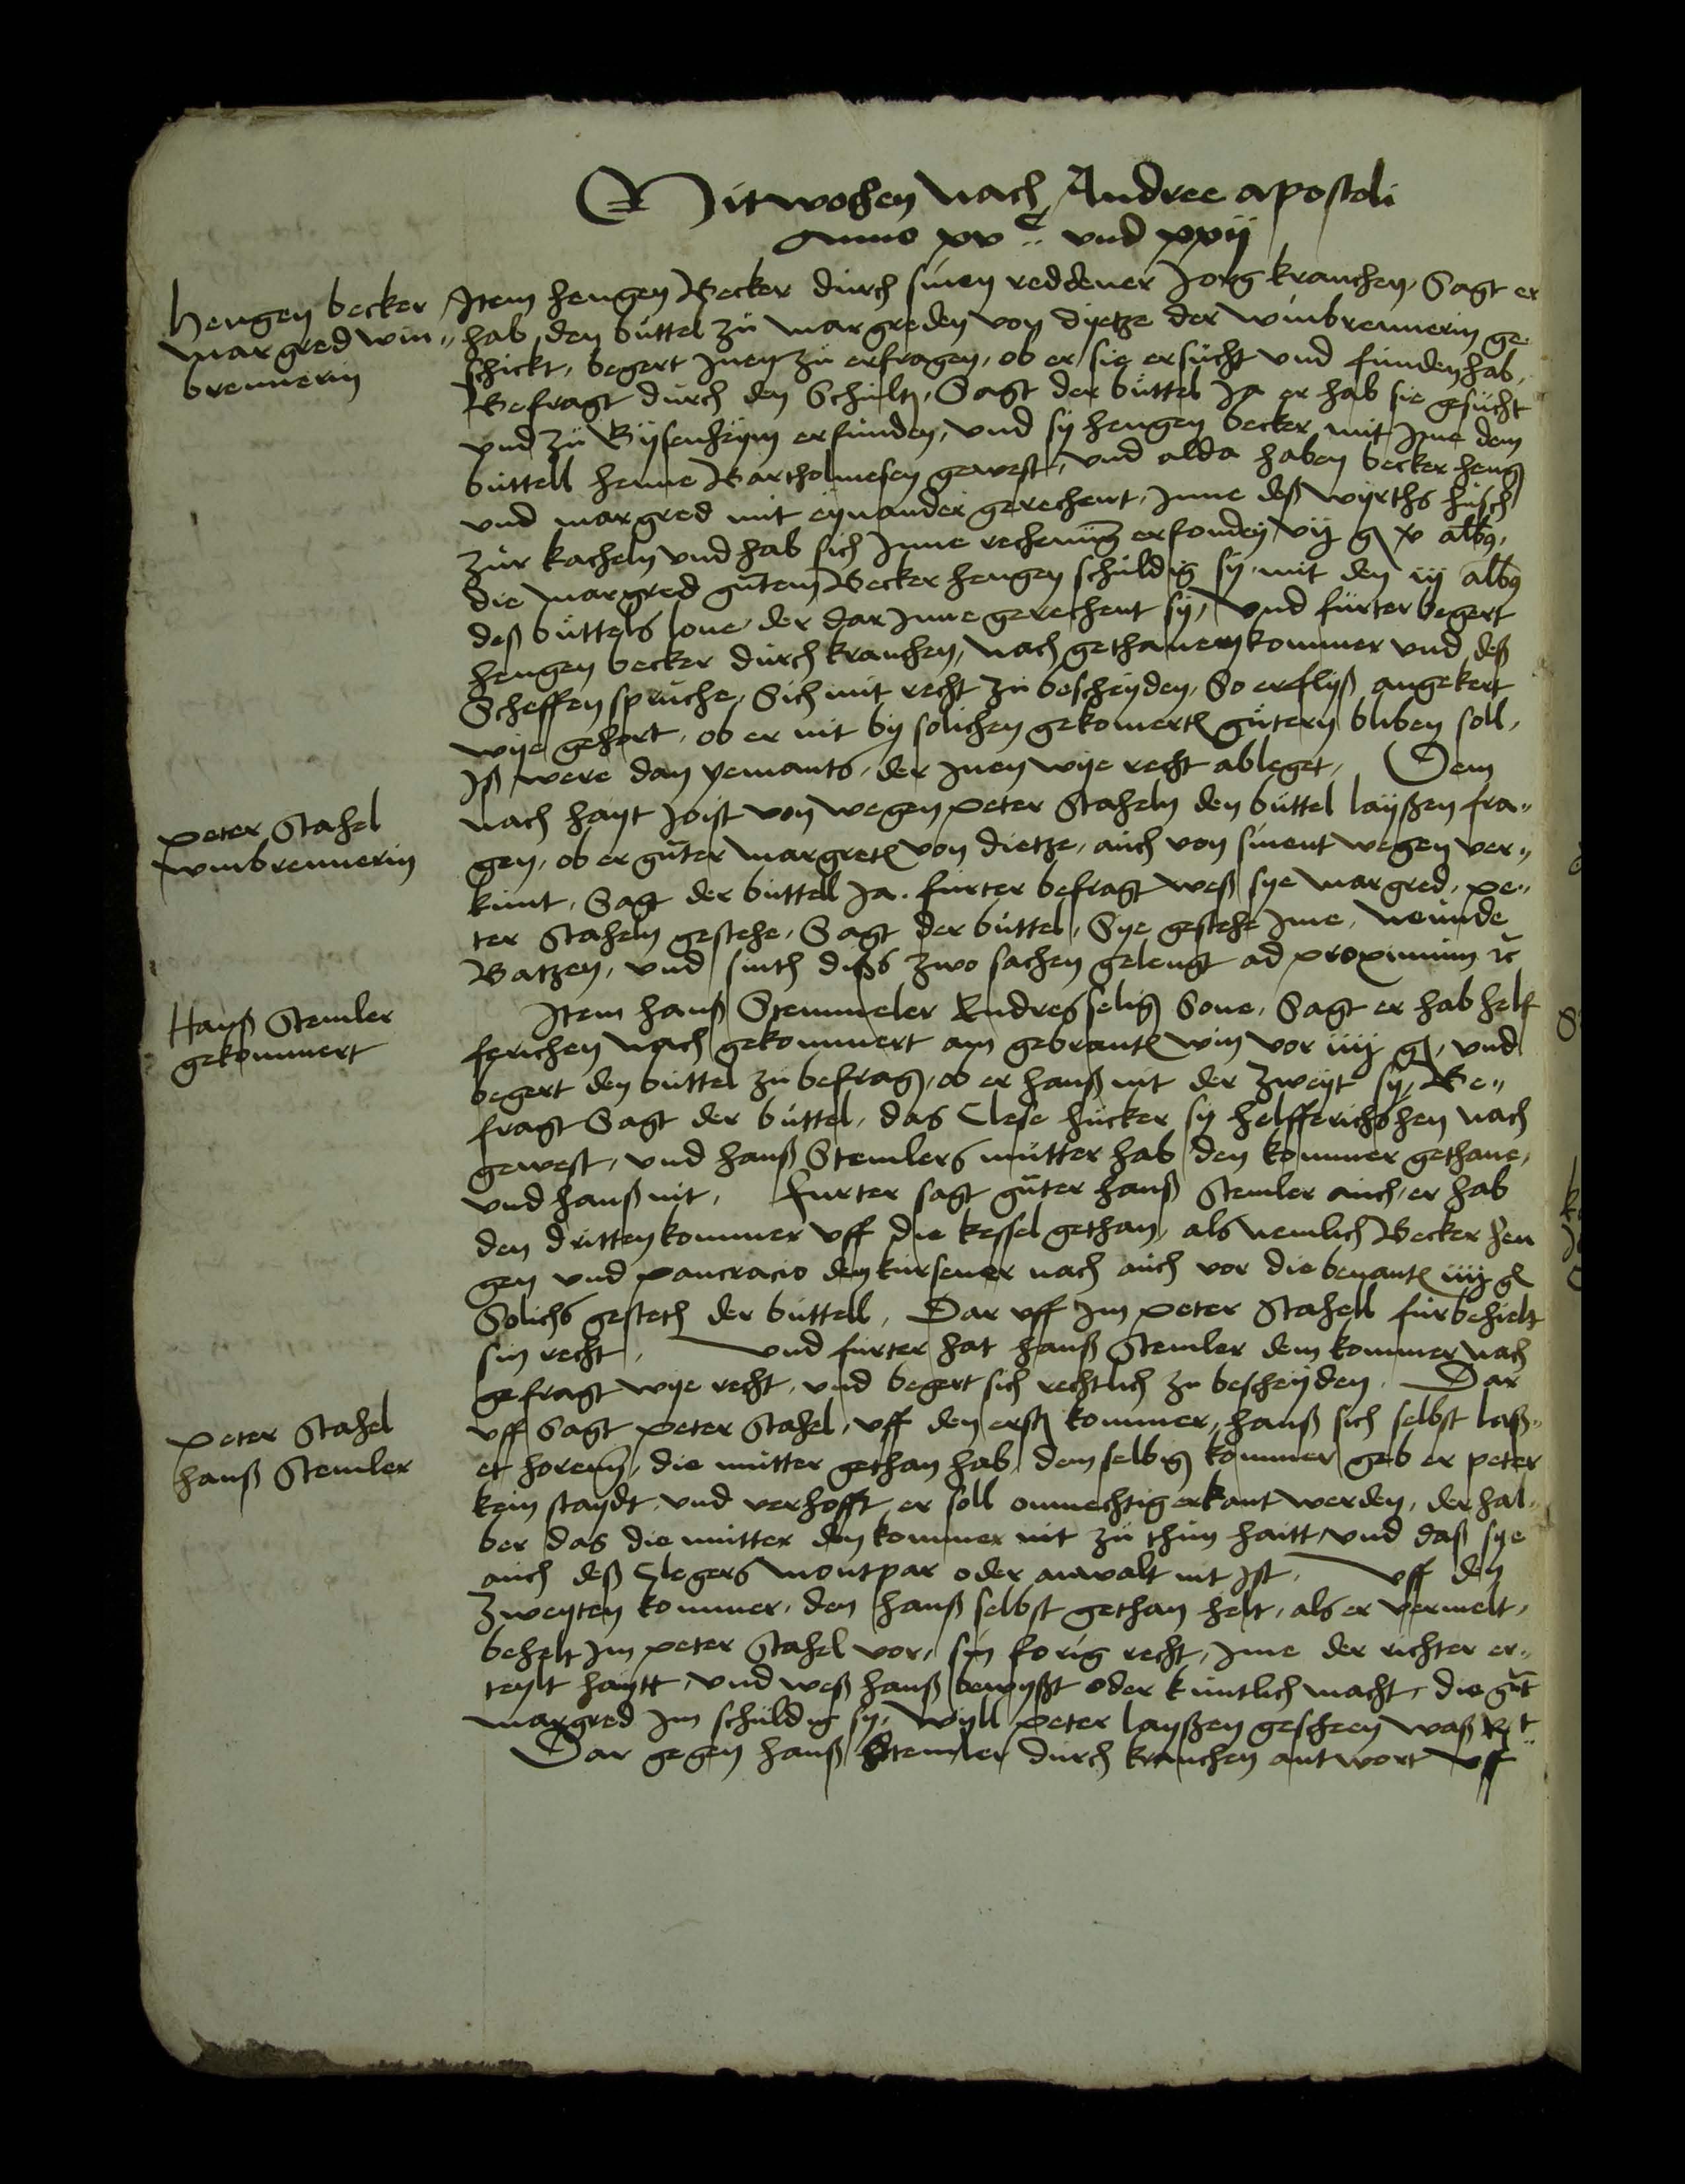 Mitwochen nach Andree apostoli
Anno xvc und xxij
Hengen becker
Margred win-
brennerin
Item Hengen Becker durch sinen reddener Jorg Kranchen, Sagt er
hab den büttel zü Margreden von Dyetze der winbrennerin ge
schickt, begert inen zü erfragen, ob er sie ersücht und fünden hab,
Befragt dürch den Schulth, Sagt der büttel Ja er hab sie gesücht
und zü Bysenheym erfünden, und sy Hengen becker mit ime dem
büttell Henne Bartholmesen gewest, und alda haben becker Heng
und Margred mit eynander gerechent, inne deß wyrths hüsch
zür Kacheln und hab sich inne rechenüng erfonden vij g xv albg,
die Margred gutem Becker Hengen schuldig sy, mit den iij albg
deß büttels lone, der dar inne gerechent sy, Und fürter begert
Hengen becker dürch Kranchen, nach gethanem kommer und deß
Scheffen sprüche, Sich mit recht zü bescheyden, So er flyß angekert
wye gehort, ob er nit by solichen gekomert gütern bliben soll,
Iß were dan yemants, der inen wye recht ableget, Dem
Peter Stahel
winbrennerin
nach hayt Joist von wegen Peter Staheln den büttel layßen fra-
gen, ob er guter Margret von Dietze, auch von sinent wegen ver-
künt, Sagt der büttell Ja. fürter befragt weß sye Margred, Pe-
ter Staheln gestehe, Sagt der büttel, Sye gestehe ime, neünde
Batzen, und sinth diß zwo sachen gelengt ad proximum etc
Hanß Stemler
gekommert
Item Hanß Stemmeler Endres selig Sone, Sagt er hab Helf
ferichen nach gekommert am gebrant win vor iiij g, und
begert den büttel zü befrag, ob er Hanß nit der zweyt sy, Be-
fragt Sagt der büttel, das Clese Hücker sy Helfferichshen nach
gewest, und Hanß Stemlers mütter hab den kommer gethane,
und Hanß nit, Furter sagt güter Hanß Stemler auch, er hab
den dritten kommer uff die kessel gethan, als nemlich Becker Hen
gen und Pancracio dem kürsener nach auch vor die benant iiij g
Solichs gesteth der büttell, Dar uff im Peter Stahell fürbehielt
sin recht, und fürter hat Hanß Stemler dem kommer nach
gefragt wye recht, und begert sich rechtlich zü bescheyden, Dar
Peter Stahel
Hanß Stemler
uff Sagt Peter Stahel, uff den erst kommer, Hanß sich selbst laß-
et horenn, die mütter gethan hab, dem selbig kommer geb er Peter
kein staydt, und verhofft er soll onmechtig erkant werden, der hal-
ber das die mütter den kommer nit zü thün haitt, und daß sye
auch deß Clegers montpar oder anwalt nit ist, Uff den
zweyten kommer, den Hanß selbst gethan helt, als er vermelt,
behelt im Peter Stahel vor, sin forig recht, ime der richter er-
teylt haytt, und weß Hanß bewyßt oder küntlich macht, die gut
Margred im schüldig sy, Wyll Peter layßen gescheen waß Rt
Dar gegen Hanß Stemler dürch Kranchen antwort uff